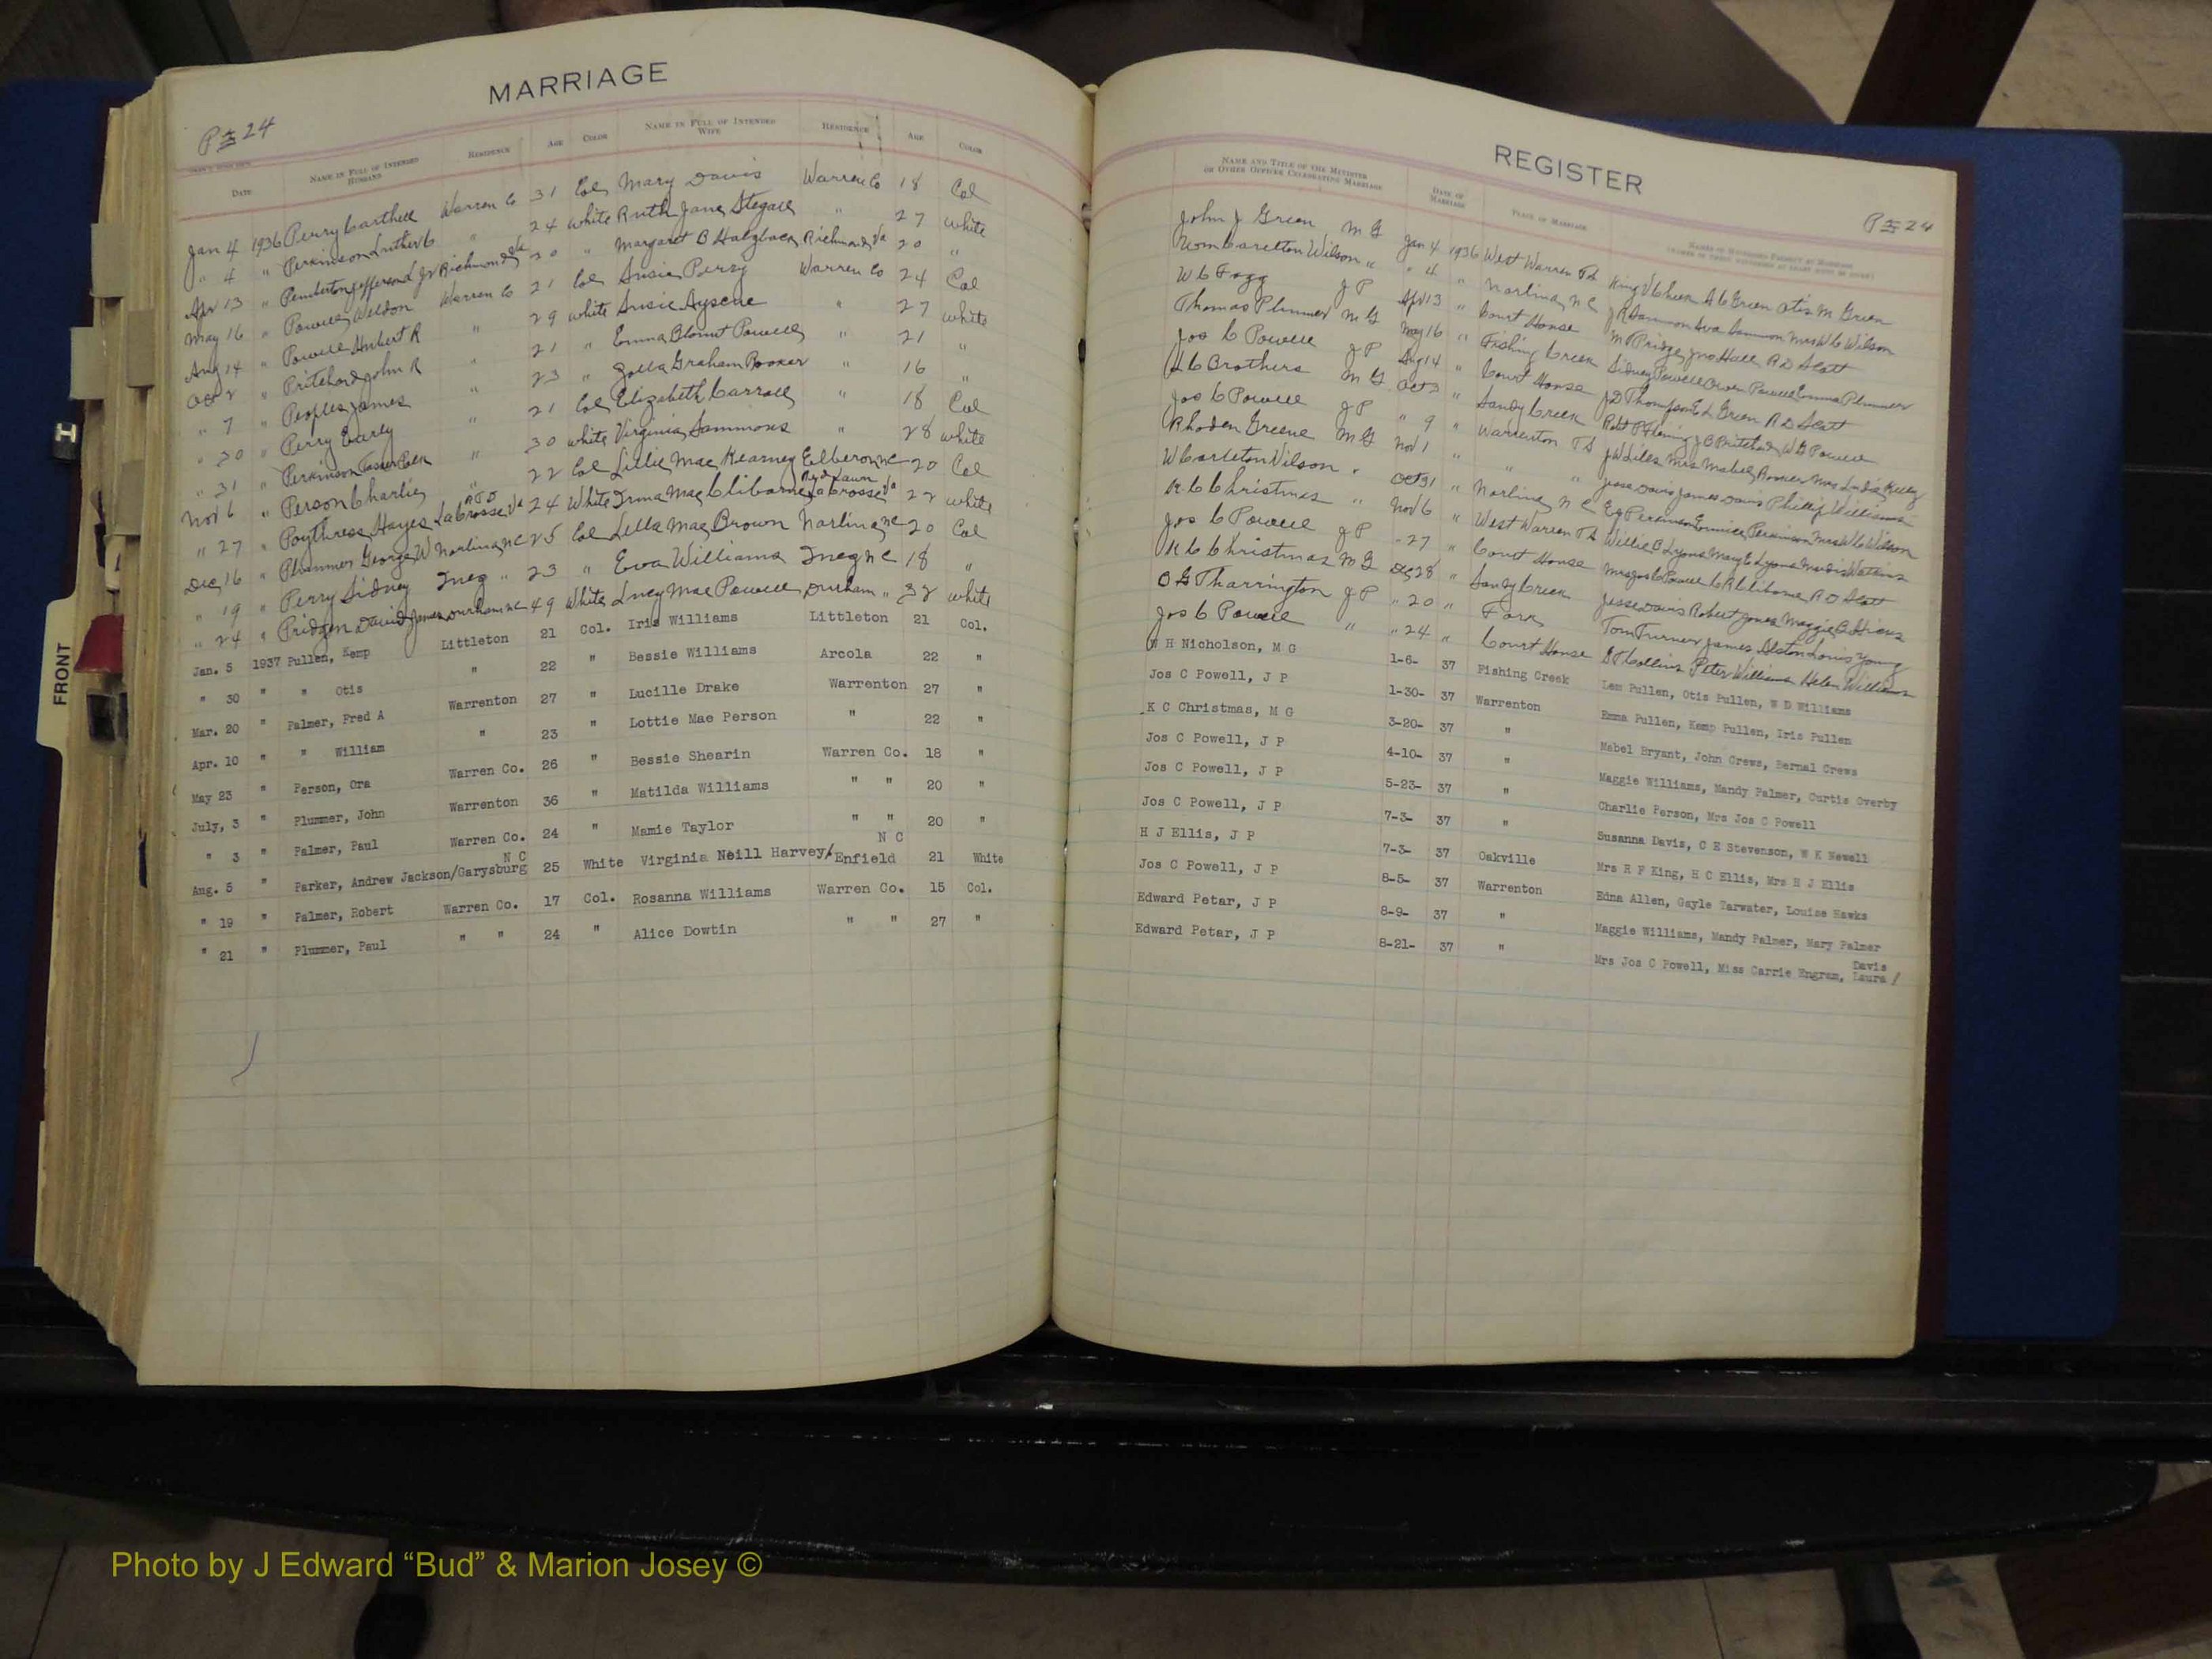 MARRIAGE
P 24
DATE NAME IN FULL OF INTENDED HUSBAND RESIDENCE AGE COLOR NAME IN FULL OF INTENDED WIFE RESIDENCE AGE COLOR
Jan 4 1936 Perry Carthell Warren Co 31 Col Mary Davis Warren Co 18 Col
" 4 " Perkinson Luther C " 24 white Ruth Jane Stegall " 27 white
Apr 13 " Pemberton Jefferson L Jr Richmond Va 20 " Margaret B Richmond Va 20 "
May 16 " Powell Weldon Warren Co 21 Col Susie Perry Warren Co 24 Col
Aug 14 " Powell Hubert R " 29 white Susie Ayscue " 27 white
Oct 2 " Pritchard John R " 21 " Emma Blount Powell " 21 "
" 7 " Peoples James " 23 " Zolla Graham Rooker " 16 "
" 30 " Perry Early " 21 Col Elizabeth Carroll " 18 Col
" 31 " Perkinson " 30 white Virginia Sammons " 28 white
Nov 6 " Person Charlie " 22 Col Lillie Mae Kearney Elberon NC 20 Col
" 27 " Poythress Hayes LaCrosse Va 24 White Irma Mae Cliborne LaCrosse Va 22 white
Dec 16 " Plummer George W Norlina NC 25 Col Lella Mae Brown Norlina NC 20 Col
" 19 " Perry Sidney Inez " 23 " Eva Williams Inez NC 18 "
" 24 " Pridgen David James Durham NC 49 White Lucy Mae Powell Durham " 32 white
Jan. 5 1937 Pullen, Kemp Littleton 21 Col. Iris Williams Littleton 21 Col.
" 30 " " Otis " 22 " Bessie Williams Arcola 22 "
Mar. 20 " Palmer, Fred A Warrenton 27 " Lucille Drake Warrenton 27 "
Apr. 10 " " William " 23 " Lottie Mae Person " 22 "
May 23 " Person, Ora Warren Co. 26 " Bessie Shearin Warren Co. 18 "
July, 3 " Plummer, John Warrenton 36 " Matilda Williams " " 20 "
" 3 " Palmer, Paul Warren Co. 24 " Mamie Taylor " " 20 "
Aug. 5 " Parker, Andrew Jackson/Garysburg N C 25 White Virginia Neill Harvey/Enfield N C 21 White
" 19 " Palmer, Robert Warren Co. 17 Col. Rosanna Williams Warren Co. 15 Col.
" 21 " Plummer, Paul " " 24 " Alice Dowtin " " 27 "
REGISTER
P 24
NAME AND TITLE OF THE MINISTER OR OTHER OFFICER CELEBRATING MARRIAGE DATE OF MARRIAGE PLACE OF MARRIAGE
John J Green M G Jan 4 1936 West Warren Green Otis M Green
Wm Carelton Wilson " " 4 " Norlina N C Mrs W C Wilson
W C Fagg J P Apr 13 " Court House Jno Hall R D Scott
Thomas Plummer M G May 16 " Fishing Creek Sidney Powell Owen Powell Emma Plummer
Jos C Powell J P Aug 14 " Court House J D Thompson E L Green R D Scott
L C Brothers M G Oct 3 " Sandy Creek Robt P Fleming J B Pritchard W B Powell
Jos C Powell J P " 9 " Warrenton J W Liles Mrs Mabel Rooker Mrs
Rhoden Greene M G Nov 1 " " " Jesse Davis James Davis Phillip Williams
W Carleton Wilson " Oct 31 " Norlina N C Perkinson Mrs W C Wilson
K C Christmas " Nov 6 " West Warren Willie B Lyons Mary E Lyons Watkins
Jos C Powell J P " 27 " Court House Mrs Jos C Powell C R Cliborne R D Scott
K C Christmas M G Dec 28 " Sandy Creek Jesse Davis Robert Jones Maggie B Hicks
B G Tharrington J P " 20 " Fork Tom Turner James Alston Louis Young
Jos C Powell " " 24 " Court House Collins Peter Williams Helen Williams
W H Nicholson, M G 1-6- 37 Fishing Creek Lem Pullen, Otis Pullen, W D Williams
Jos C Powell, J P 1-30- 37 Warrenton Emma Pullen, Kemp Pullen, Iris Pullen
K C Christmas, M G 3-20- 37 " Mabel Bryant, John Crews, Bernal Crews
Jos C Powell, J P 4-10- 37 " Maggie Williams, Mandy Palmer, Curtis Overby
Jos C Powell, J P 5-23- 37 " Charlie Person, Mrs Jos C Powell
Jos C Powell, J P 7-3- 37 " Susanna Davis, C E Stevenson, W K Newell
H J Ellis, J P 7-3- 37 Oakville Mrs R F King, H C Ellis, Mrs H J Ellis
Jos C Powell, J P 8-5- 37 Warrenton Edna Allen, Gayle Tarwater, Louise Hawks
Edward Petar, J P 8-9- 37 " Maggie Williams, Mandy Palmer, Mary Palmer
Edward Petar, J P 8-21- 37 " Mrs Jos C Powell, Miss Carrie Engram, Laura / Davis
FRONT
H
Photo by J Edward “Bud” & Marion Josey ©